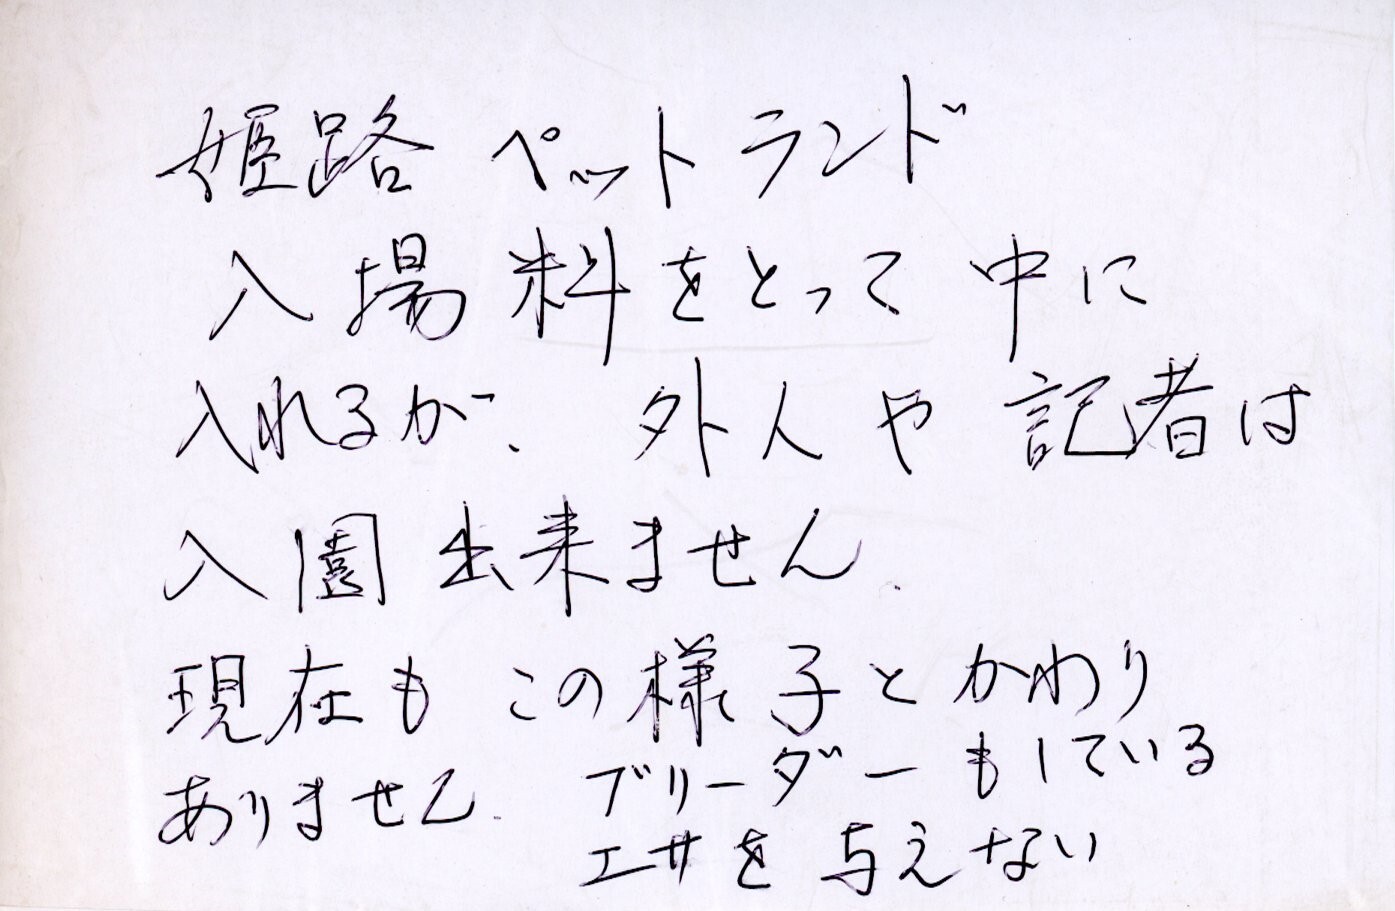 姫路ペットランド
入場料をとって中に
入れるが、外人や記者は
入園出来ません.
現在もこの様子とかわり
ありません.
ブリーダーもしている
エサを与えない